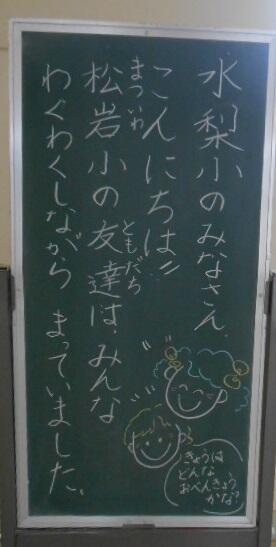 水梨小のみなさん
こんにちは!!
まついわ
松岩小の友達は、みんな
ともだち
わくわくしながら まっていました。
きょうは
どんな
おべんきょう
かな?